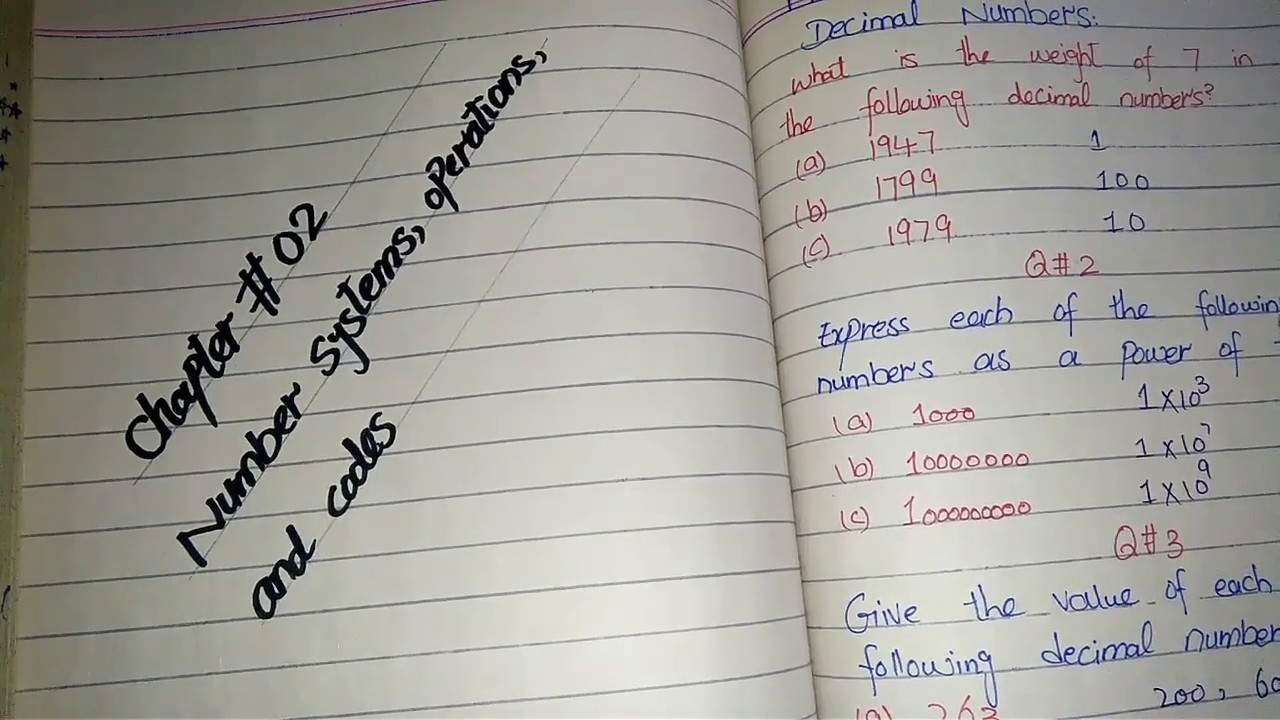 Chapter # 02
Number Systems, operations,
and codes
Decimal Numbers:
What is the weight of 7 in
the following decimal numbers?
(a) 1947 1
(b) 1799 100
(c) 1979 10
Q#2
Express each of the followin
numbers as a power of
(a) 1000 1×10³
(b) 10000000 1×10⁷
(c) 1000000000 1×10⁹
Q#3
Give the value of each
following decimal number
(a) 263 200, 60